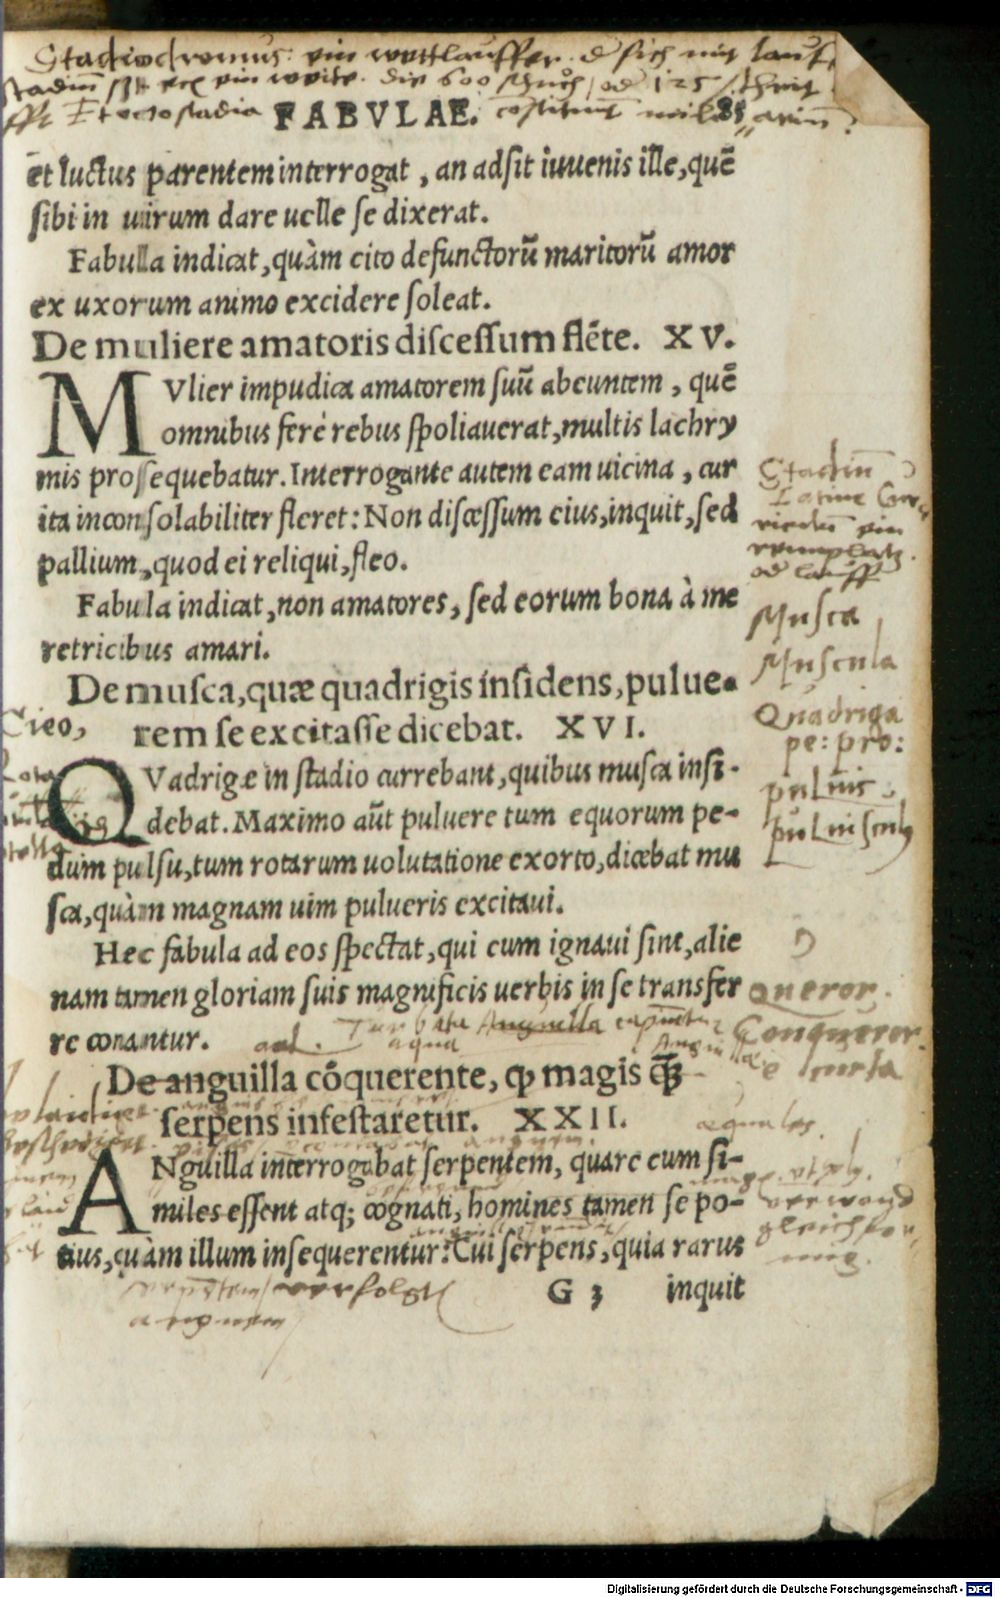 Stadiodromus: ein wettlauffer. d sich mit lauf
Stadiū ein weite. die 600 schuͦch / od 125 schrit
Et octo stadia FABVLAE. cōstituūt
et luctus parentem interrogat, an adsit iuuenis ille, quē
sibi in uirum dare uelle se dixerat.
Fabulla indicat, quàm cito defunctorū maritorū amor
ex uxorum animo excidere soleat.
De muliere amatoris discessum flēte. XV.
MVlier impudica amatorem suū abeuntem, quē
omnibus ferè rebus spoliauerat, multis lachry
mis prossequebatur. Interrogante autem eam uicina, cur
ita inconsolabiliter fleret: Non discessum eius, inquit, sed
pallium, quod ei reliqui, fleo.
Fabula indicat, non amatores, sed eorum bona à me
retricibus amari.
De musca, quæ quadrigis insidens, pulue-
rem se excitasse dicebat. XVI.
QVadrigæ in stadio currebant, quibus musca insi-
debat. Maximo aūt puluere tum equorum pe-
dum pulsu, tum rotarum uolutatione exorto, dicebat mu
sca, quàm magnam uim pulueris excitaui.
Hec fabula ad eos spectat, qui cum ignaui sint, alie
nam tamen gloriam suis magnificis uerbis in se transfer
re conantur.
Turbata Anguilla
aqua
De anguilla cōquerente, ꝙ magis ꝗ̈
serpens infestaretur. XXII.
ANguilla interrogabat serpentem, quare cum si-
miles essent atq; cognati, homines tamen se po-
tius, quàm illum insequerentur? Cui serpens, quia rarus
G 3 inquit
verfolgt
anguem
Stadiū
Latine
ein
rennplatz
od lauff
Musca
Muscula
Quadriga
pe: pro:
puluis
puluisculus
Queror.
Conqueror.
æquales.
verwand
gleichfor-
mig.
Cieo,
Rota